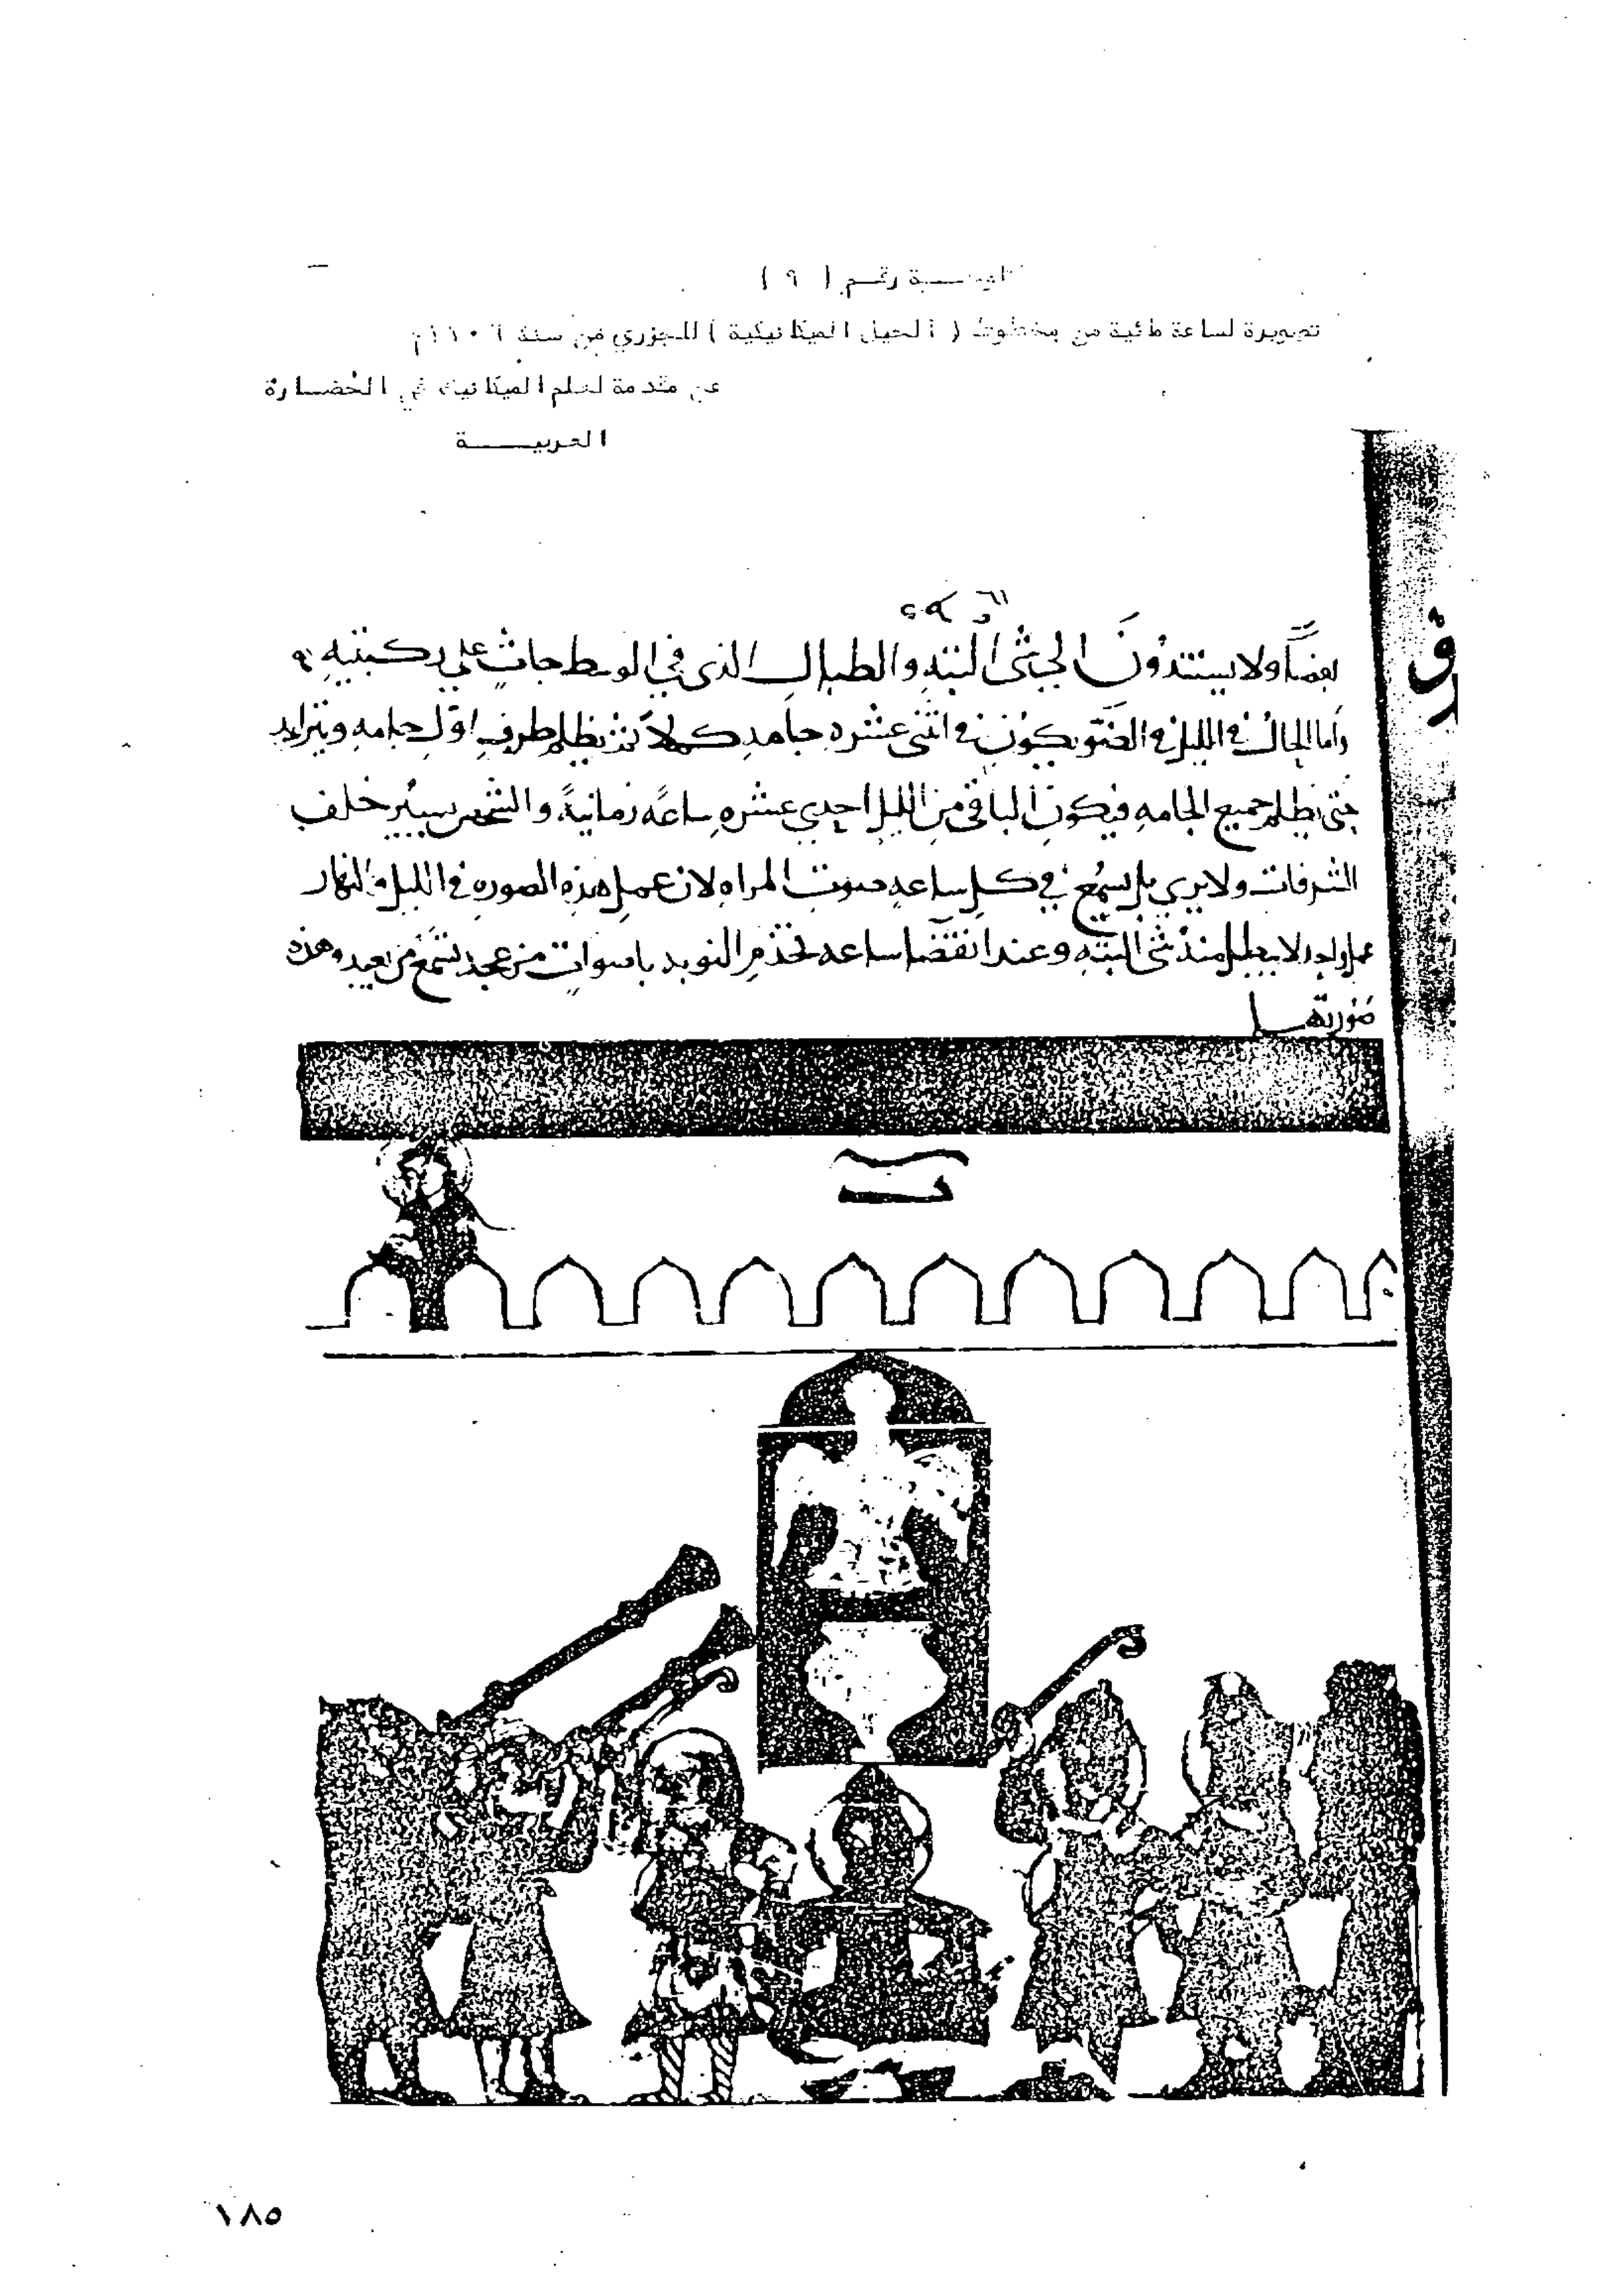 رقم ( ٩ )
تصويرة لساعة مائية من مخطوط ( الحيل الميكانيكية ) للجزري من سنة
عن مقدمة لعلم الميكانيك في الحضارة
العربيــــــة
بعضًا ولا يستندون الى شى البته والطبال الذى في الوسط جاثٍ على ركبتيه
واما الحال في الليل في الضو يكون في اثنى عشره جامه كملا ثم يظلم طرف اول جامه ويتزايد
حتى يظلم جميع الجامه فيكون الباقي من الليل احدى عشره ساعه زمانية والشخص يسير خلف
الشرفات ولا يرى بل يسمع في كل ساعه صوت المراه لان عمل هذه الصوره في الليل والنهار
عمل واحد لا يبطل منه شى البته وعند انقضا ساعه تخدم النوبه باصوات مزعجه تسمع من بعيد وهذه
صورتها
١٨٥